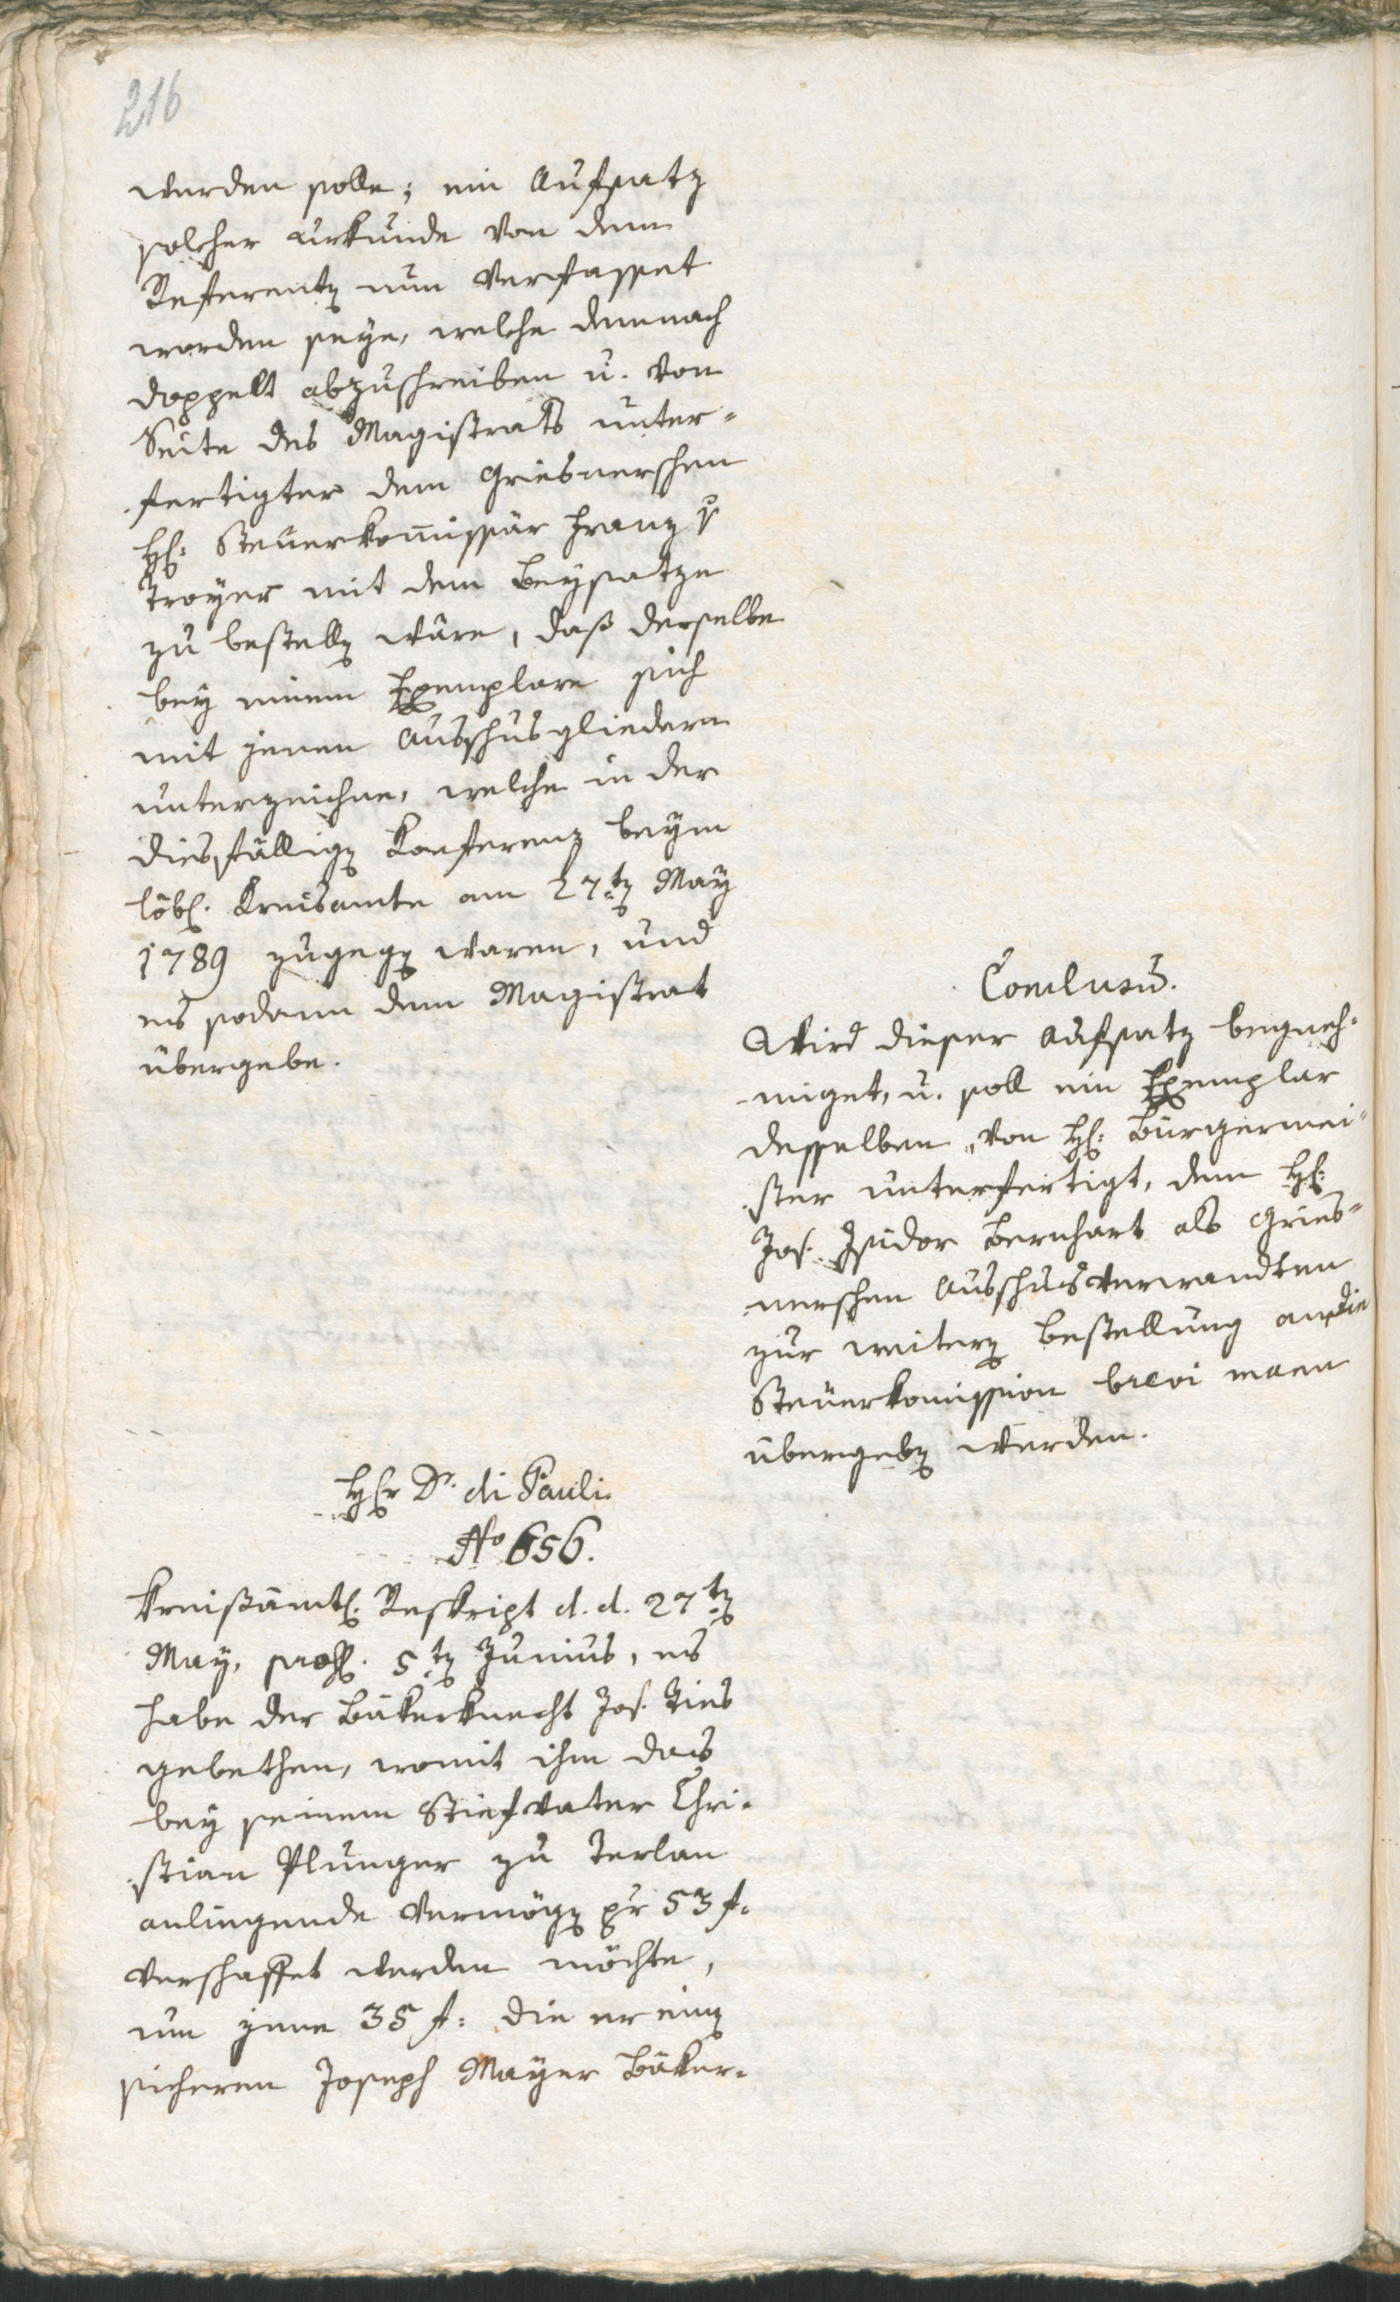 216
werden solle; ein Aufsatz
solcher Urkunde von dem
Referenten nun verfasset
worden seye, welche demnach
doppelt abzuschreiben u. von
Seite des Magistrats unter-
fertigter dem Griesnerschen
H: Steuerkom̄issär Franz v
Troyer mit dem Beysatze
zu bestellen wäre, daß derselbe
bey einem Exemplare sich
mit jenen Ausschusgliedern
unterzeichne, welche in der
diesfälligen Konferenz beym
löbl. Kreisamte am 27ten May
1789 zugegen waren, und
es sodann dem Magistrat
übergebe.
Conclusū.
Wird dieser Aufsatz begneh-
miget, u. soll ein Exemplar
desselben, von H: Bürgermei-
ster unterfertigt, dem H:
Jos. Isidor Bernhart als Gries-
nerschen Ausschusverwandten
zur weitern Bestellung an die
Steuerkomission brevi manu
übergeben werden.
Hr Dr. di Pauli.
No 656.
Kreißämtl. Reskript d. d. 27ten
May, præs. 5ten Junius, es
habe der Bäkerknecht Jos. Ties
gebethen, womit ihm das
bey seinem Stiefvater Chri-
stian Plunger zu Terlan
anliegende Vermögen pr 53 f.
verschaffet werden möchte,
um jene 35 f: die er einen
sicheren Joseph Mayer Bäker-